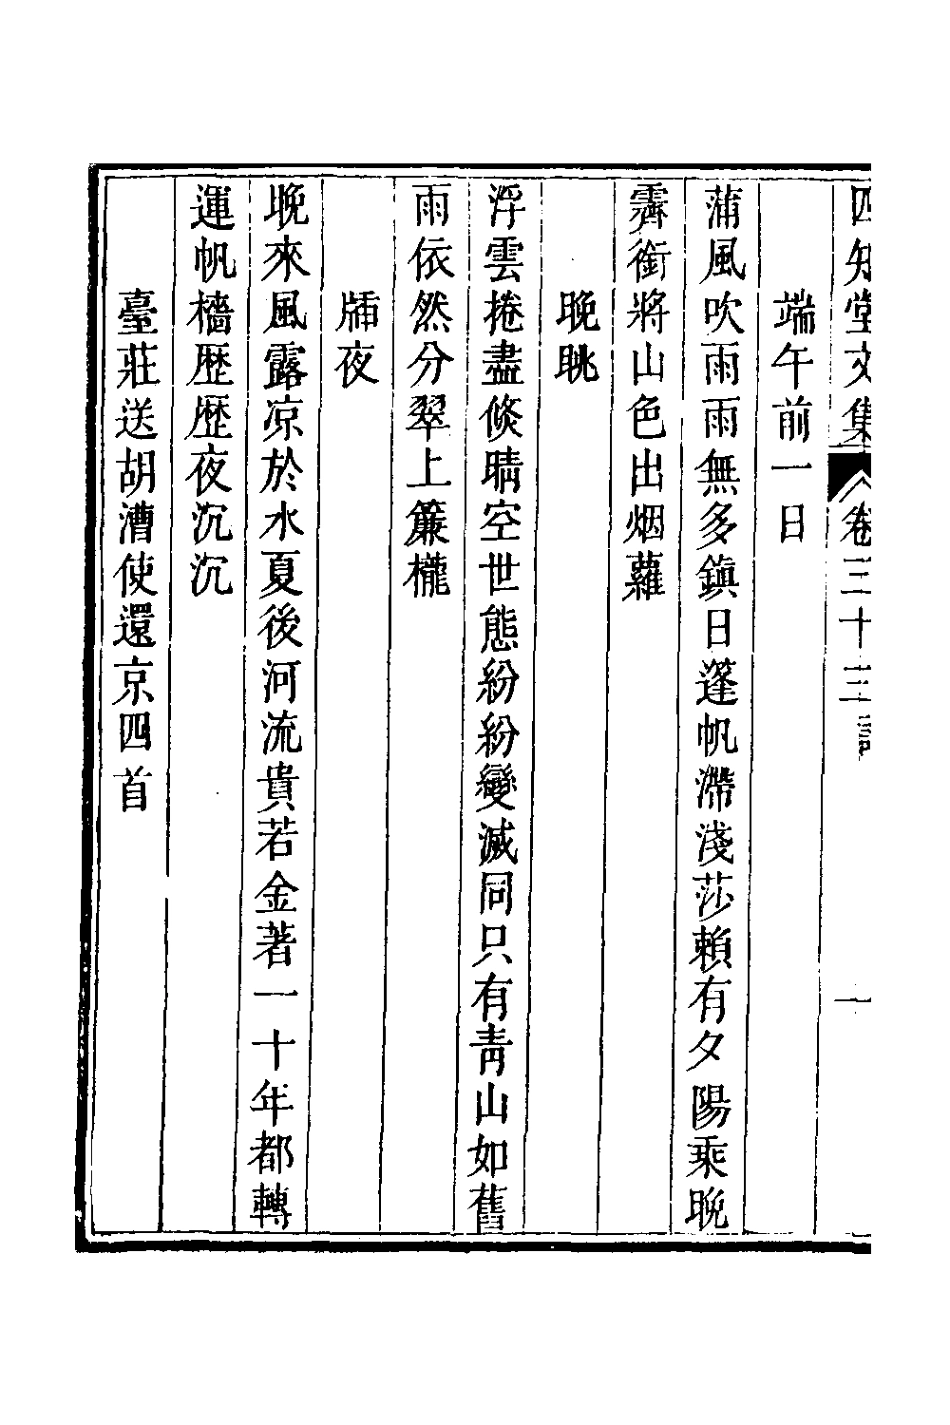 四知堂文集 卷三十三 詩 一
端午前一日
蒲風吹雨雨無多鎮日蓬帆滯淺莎賴有夕陽乘晚
霽銜將山色出烟蘿
晚眺
浮雲捲盡倐晴空世態紛紛變滅同只有靑山如舊
雨依然分翠上簾櫳
牐夜
晚來風露凉於水夏後河流貴若金著一十年都轉
運帆檣歷歷夜沉沉
臺莊送胡漕使還京四首